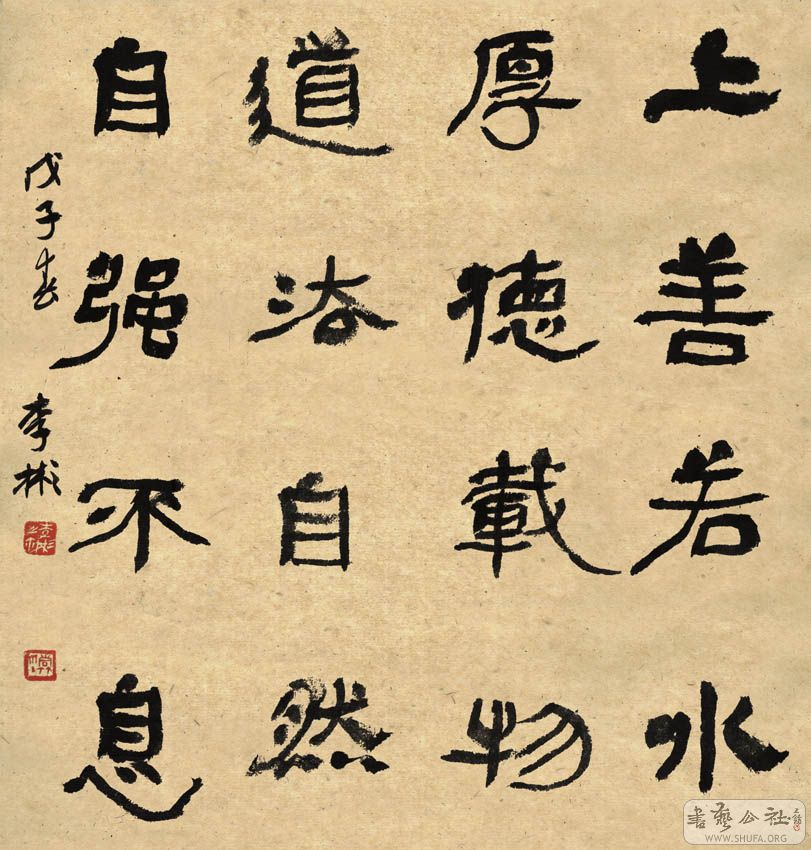 上善若水
厚德載物
道法自然
自强不息
戊子春 李彬
書藝公社
WWW.SHUFA.ORG